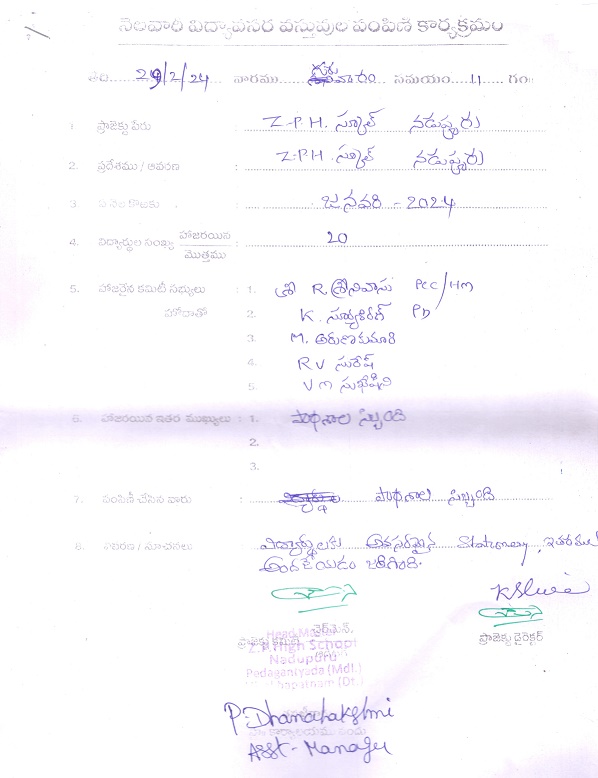 నెలవారీ విద్యావసర వస్తువుల పంపిణీ కార్యక్రమం
తేది 29/2/24 వారము గురువారం సమయం 11 గం॥
1. ప్రాజెక్టు పేరు : Z.P.H. స్కూల్ నడుపూరు
2. ప్రదేశము / ఆవరణ : Z.P.H. స్కూల్ నడుపూరు
3. ఏ నెల కొరకు : జనవరి - 2024
4. విద్యార్థుల సంఖ్య హాజరయిన / మొత్తము : 20
5. హాజరైన కమిటీ సభ్యులు : 1. శ్రీ R. శ్రీనివాసు PCC/HM
హోదాతో 2. K. సూర్యకిరణ్ PD
3. M. అరుణకుమారి
4. R V సురేష్
5. V M సుభాషిని
6. హాజరయిన ఇతర ముఖ్యులు : 1. పాఠశాల సిబ్బంది
2.
3.
7. పంపిణీ చేసిన వారు : పాఠశాల సిబ్బంది
8. వివరణ / సూచనలు : విద్యార్థులకు అవసరమైన Stationery, ఇతరములు
అందజేయడం జరిగింది.
ప్రాజెక్టు కమిటీ ఛైర్మెన్,
ప్రాజెక్టు డైరెక్టర్
Head Master
Z.P.High School
Nadupuru
Pedagantyada (Mdl.)
Visakhapatnam (Dt.)
P. Dhanalakshmi
Asst - Manager